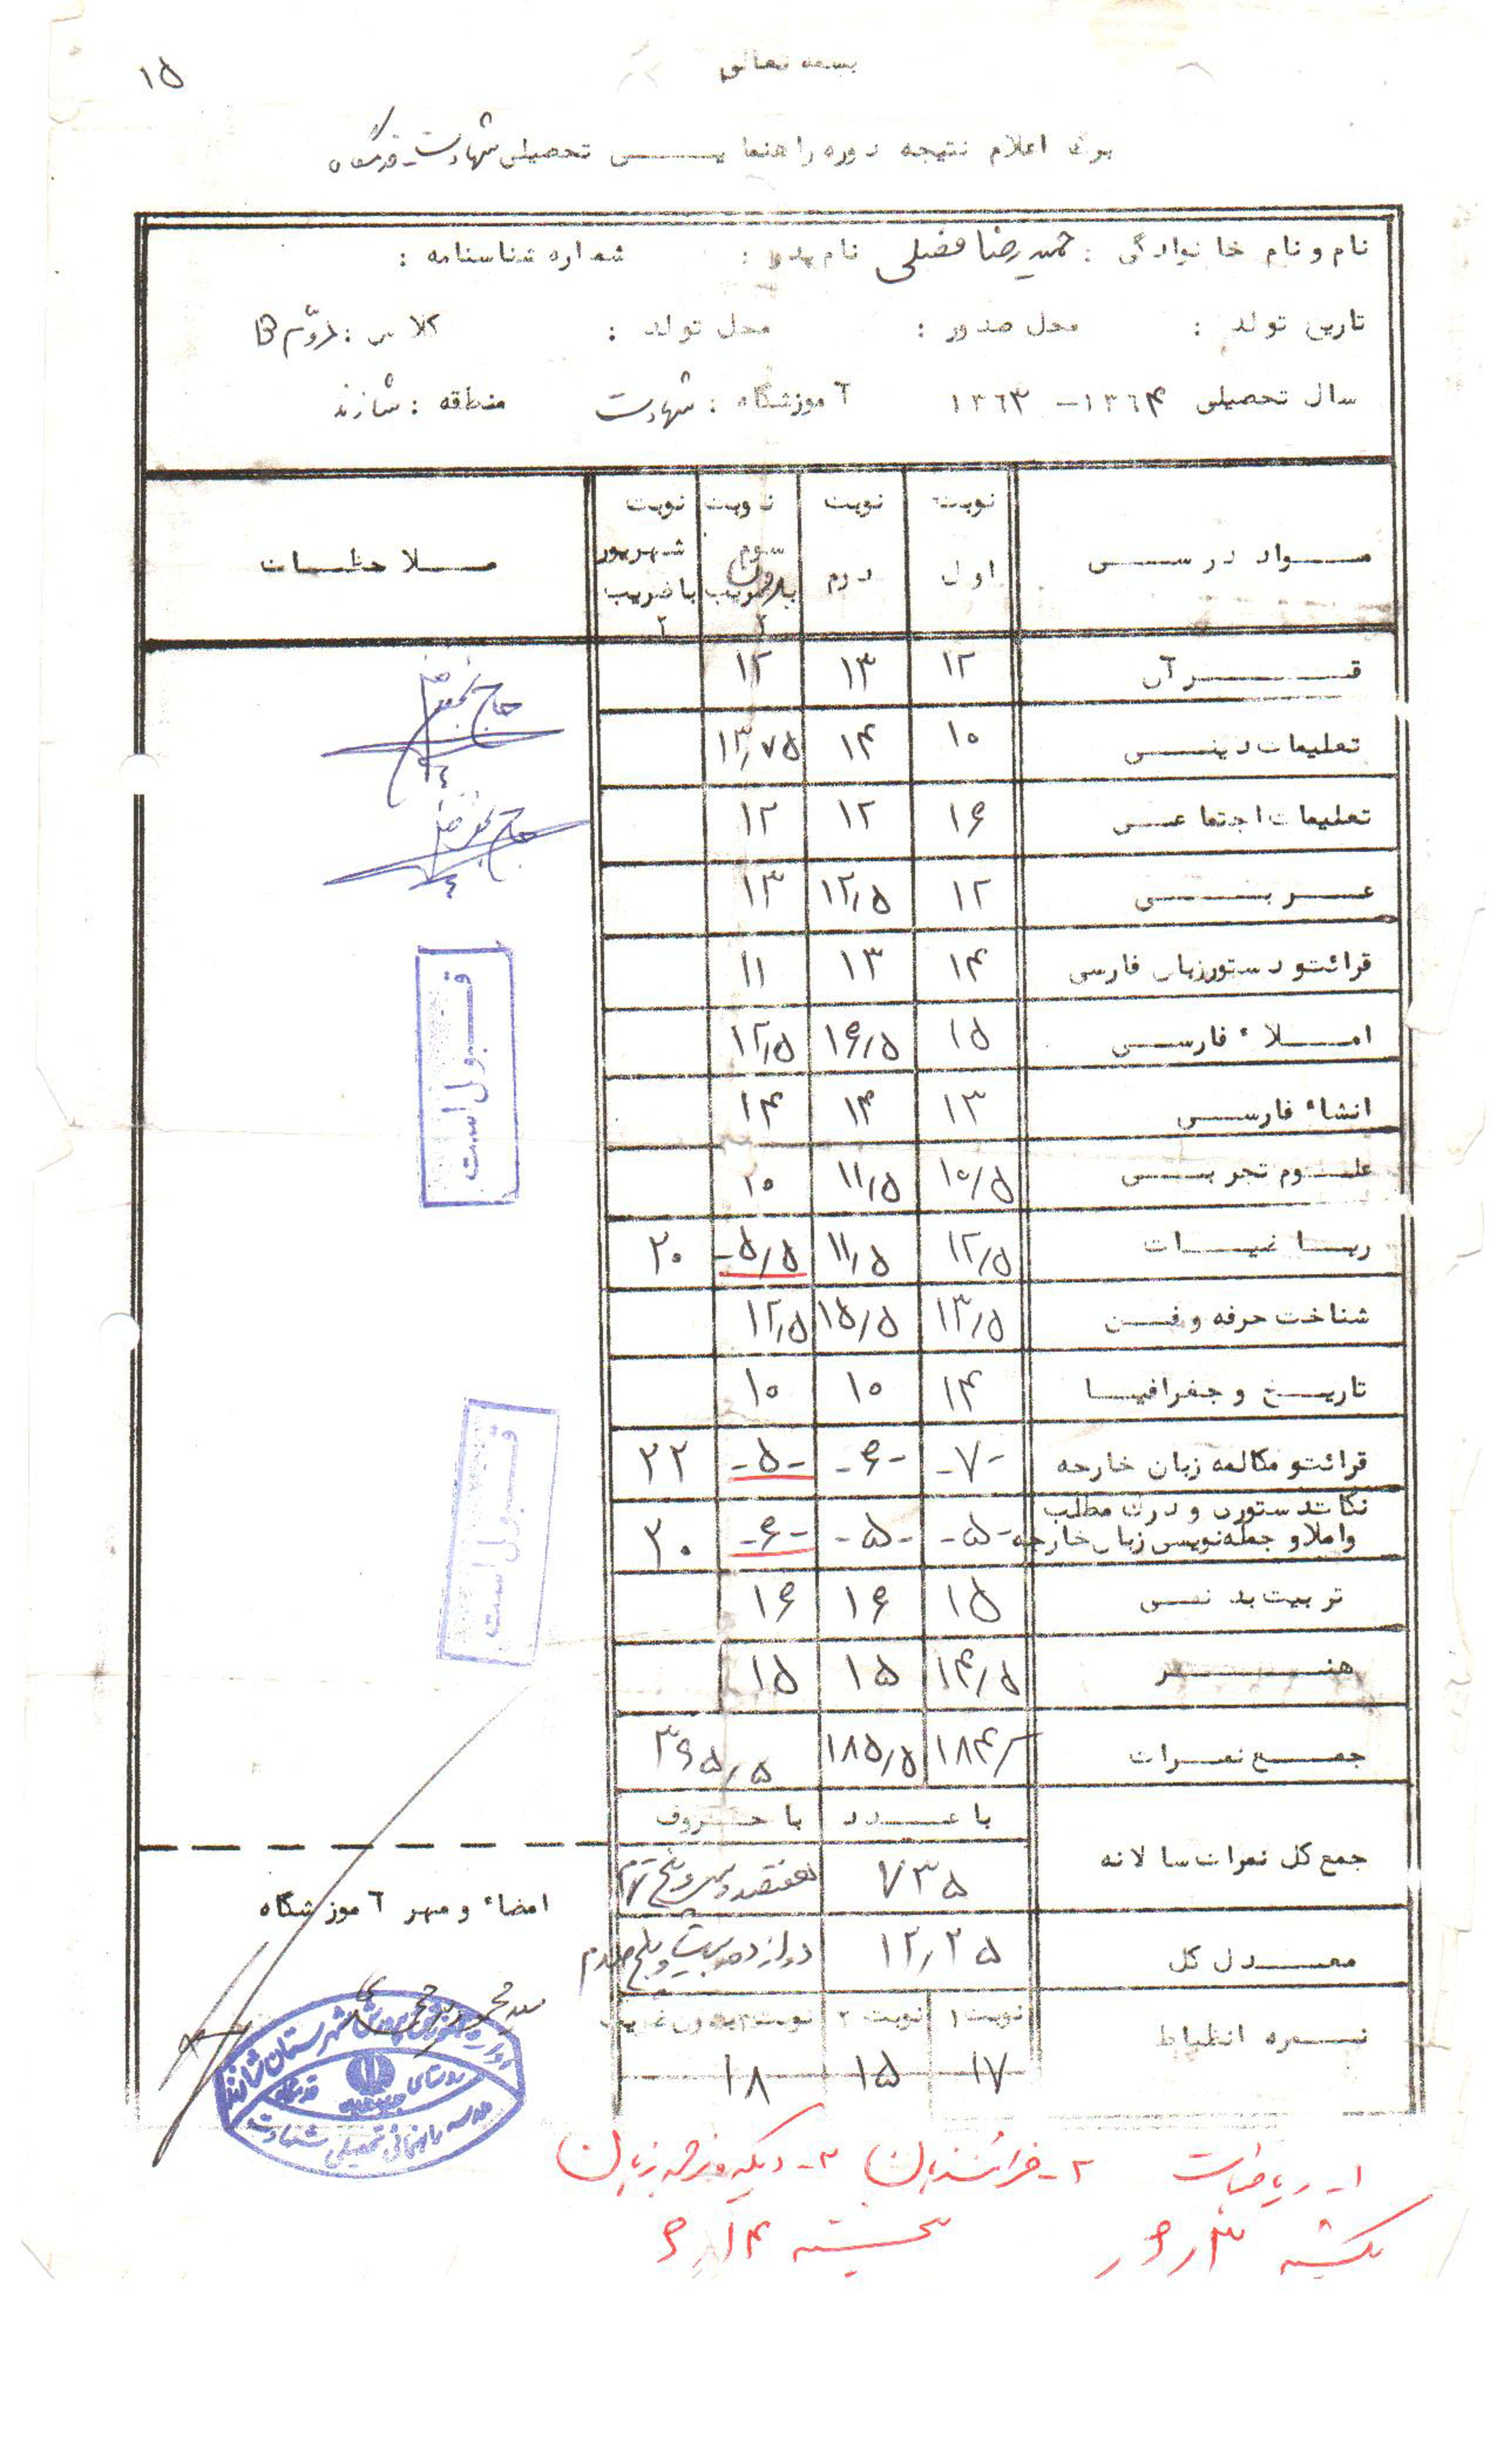 ۱۵
بسمه تعالی
برگ اعلام نتیجه دوره راهنمایی تحصیلی شهادت - قدمگاه
نام و نام خانوادگی : حمیدرضا فضلی نام پدر : شماره شناسنامه :
تاریخ تولد : محل صدور : محل تولد : کلاس : دوم B
سال تحصیلی ۱۳۶۴ - ۱۳۶۳ آموزشگاه : شهادت منطقه : شازند
مواد درسی نوبت اول نوبت دوم نوبت سوم نوبت شهریور با ضریب ۲ ملاحظات
قرآن ۱۲ ۱۳ ۱۲
تعلیمات دینی ۱۰ ۱۴ ۱۳/۷۵
تعلیمات اجتماعی ۱۶ ۱۲ ۱۲
عربی ۱۲ ۱۲/۵ ۱۳
قرائت و دستور زبان فارسی ۱۴ ۱۳ ۱۱
املاء فارسی ۱۵ ۱۶/۵ ۱۲/۵
انشاء فارسی ۱۳ ۱۴ ۱۴
علوم تجربی ۱۰/۵ ۱۱/۵ ۱۰
ریاضیات ۱۲/۵ ۱۱/۵ ۵/۵- ۲۰
شناخت حرفه و فن ۱۳/۵ ۱۵/۵ ۱۲/۵
تاریخ و جغرافیا ۱۴ ۱۰ ۱۰
قرائت و مکالمه زبان خارجه -۷- -۶- -۵- ۲۲
نکات دستوری و درک مطلب
و املا و جمله نویسی زبان خارجه -۵- -۵- -۶- ۲۰
تربیت بدنی ۱۵ ۱۶ ۱۶
هنر ۱۴/۵ ۱۵ ۱۵
جمع نمرات ۱۸۴/ ۱۸۵/۵ ۳۶۵/۵
با عدد با حروف
جمع کل نمرات سالانه ۷۳۵ هفتصد و سی و پنج تمام
معدل کل ۱۲/۲۵ دوازده و بیست و پنج صدم
نمره انظباط نوبت ۱ نوبت ۲ نوبت ۳ بدون ضریب
۱۷ ۱۵ ۱۸
قبول است
قبول است
امضاء و مهر آموزشگاه
اداره آموزش و پرورش شهرستان شازند
روستای قدمگاه
مدرسه راهنمائی تحصیلی شهادت
۱- ریاضیات ۲- قرائت زبان ۳- دیکته و ترجمه زبان
یکشنبه ۳/۶ پنجشنبه ۱۴/۶